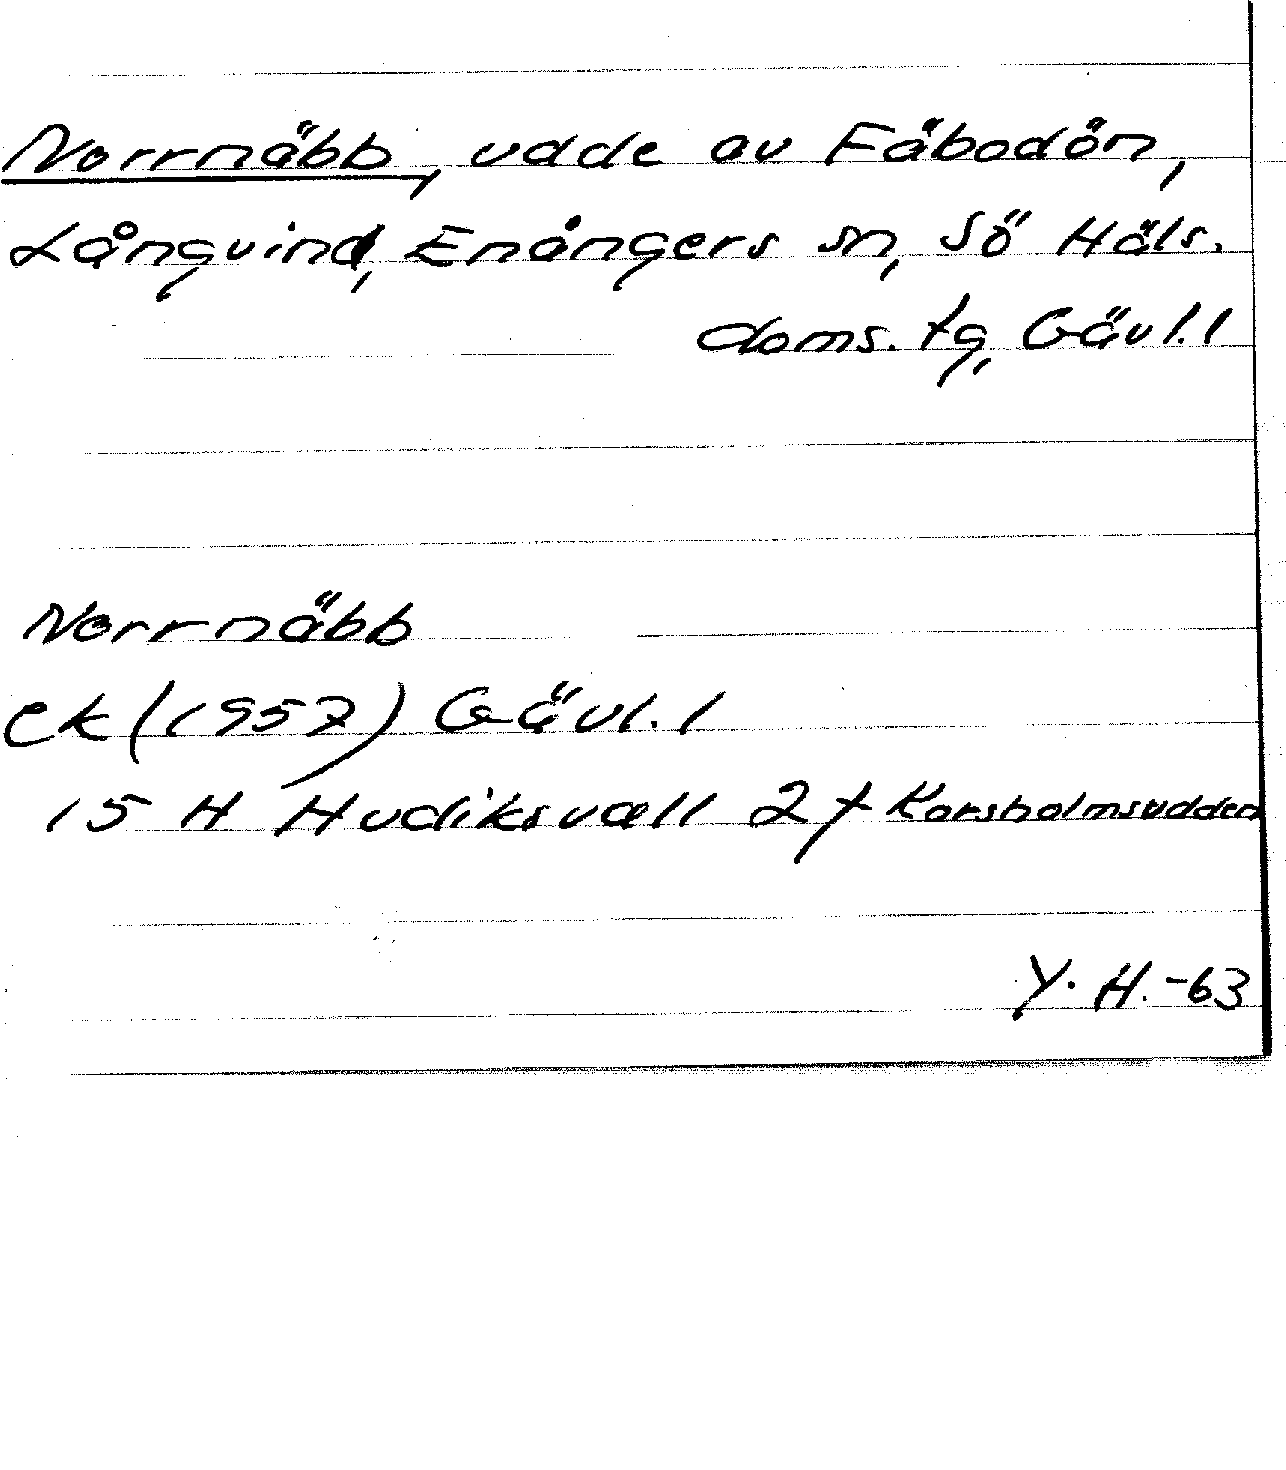 Norrnäbb, udde av Fäbodön,
Långvind, Enångers sn, Sö Häls.
doms. tg, Gävl. l
Norrnäbb
ek (1957) Gävl. l
15 H Hudiksvall 2 f Korsholmsudden
Y. H. -63